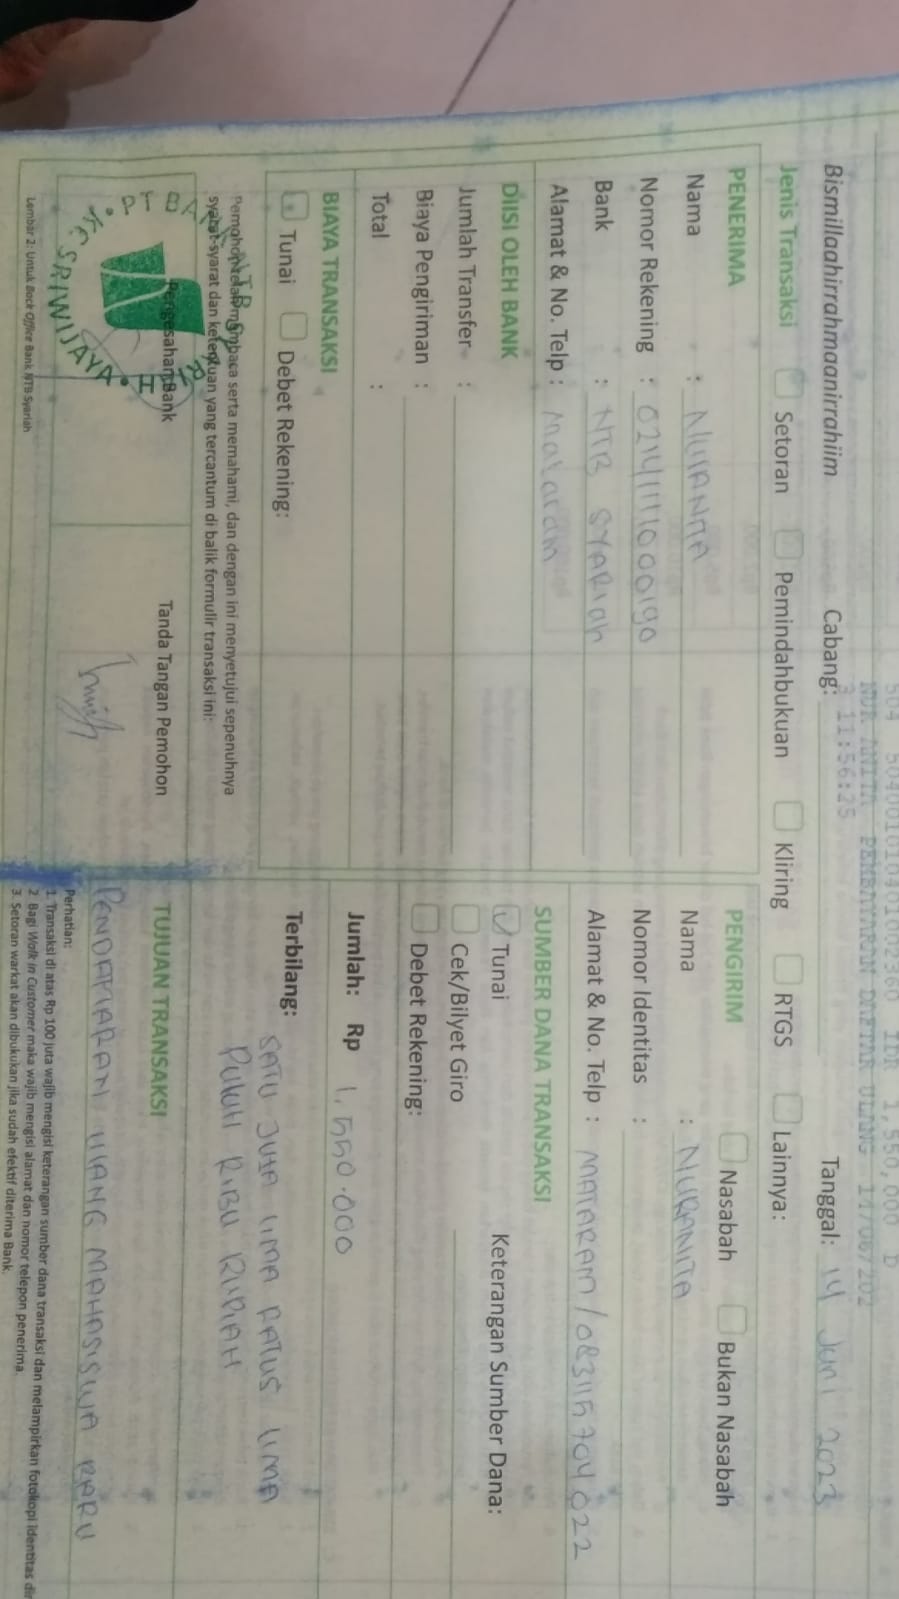 504 504001010401002360 IDR 1,550,000 D
NUR ANITA PEMBAYARAN DAFTAR ULANG 14/06/202
3 11:56:25
Bismillaahirrahmaanirrahiim Cabang: Tanggal: 14 Juni 2023
Jenis Transaksi Setoran Pemindahbukuan Kliring RTGS Lainnya:
PENERIMA
Nama : NURANITA
Nomor Rekening :
Bank : NTB SYARIah
Alamat & No. Telp : Mataram
PENGIRIM Nasabah Bukan Nasabah
Nama : NURANITA
Nomor Identitas :
Alamat & No. Telp : MATARAM / 083115704022
DIISI OLEH BANK
Jumlah Transfer :
Biaya Pengiriman :
Total :
SUMBER DANA TRANSAKSI
Tunai Keterangan Sumber Dana:
Cek/Bilyet Giro
Debet Rekening:
BIAYA TRANSAKSI
Tunai Debet Rekening:
Jumlah: Rp 1.550.000
Terbilang: SATU JUTA LIMA RATUS LIMA
PULUH RIBU RUPIAH
Pemohon telah membaca serta memahami, dan dengan ini menyetujui sepenuhnya
syarat-syarat dan ketentuan yang tercantum di balik formulir transaksi ini:
Pengesahan Bank
Tanda Tangan Pemohon
PT BANK NTB SYARIAH
SRIWIJAYA
TUJUAN TRANSAKSI
PENDAFTARAN ULANG MAHASISWA BARU
Perhatian:
1. Transaksi di atas Rp 100 juta wajib mengisi keterangan sumber dana transaksi dan melampirkan fotokopi identitas dir
2. Bagi Walk in Customer maka wajib mengisi alamat dan nomor telepon penerima.
3. Setoran warkat akan dibukukan jika sudah efektif diterima Bank.
Lembar 2: Untuk Back Office Bank NTB Syariah